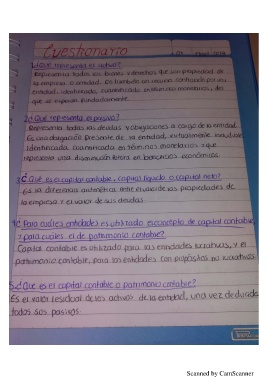 Cuestionario
1.¿Qué representa el activo?
Representa todos los bienes y derechos que son propiedad de
la empresa o entidad. Es también un recurso controlado por una
entidad, identificado, cuantificado en términos monetarios, del
que se esperan fundadamente.
2.¿Qué representa el pasivo?
Representa todas las deudas y obligaciones a cargo de la entidad.
Es una obligación presente de la entidad, virtualmente ineludible
identificada, cuantificada en términos monetarios y que
representa una disminución futura en beneficios económicos.
3.¿Qué es el capital contable, capital líquido o capital neto?
Es la diferencia aritmética entre el valor de las propiedades de
la empresa y el valor de sus deudas.
4.¿Para cuáles entidades es utilizado el concepto de capital contable
y para cuáles el de patrimonio contable?
Capital contable es utilizado para las entidades lucrativas, y el
patrimonio contable, para las entidades con propósitos no lucrativos.
5.¿Qué es el capital contable o patrimonio contable?
Es el valor residual de los activos de la entidad, una vez deducidos
todos sus pasivos.
Scanned by CamScanner